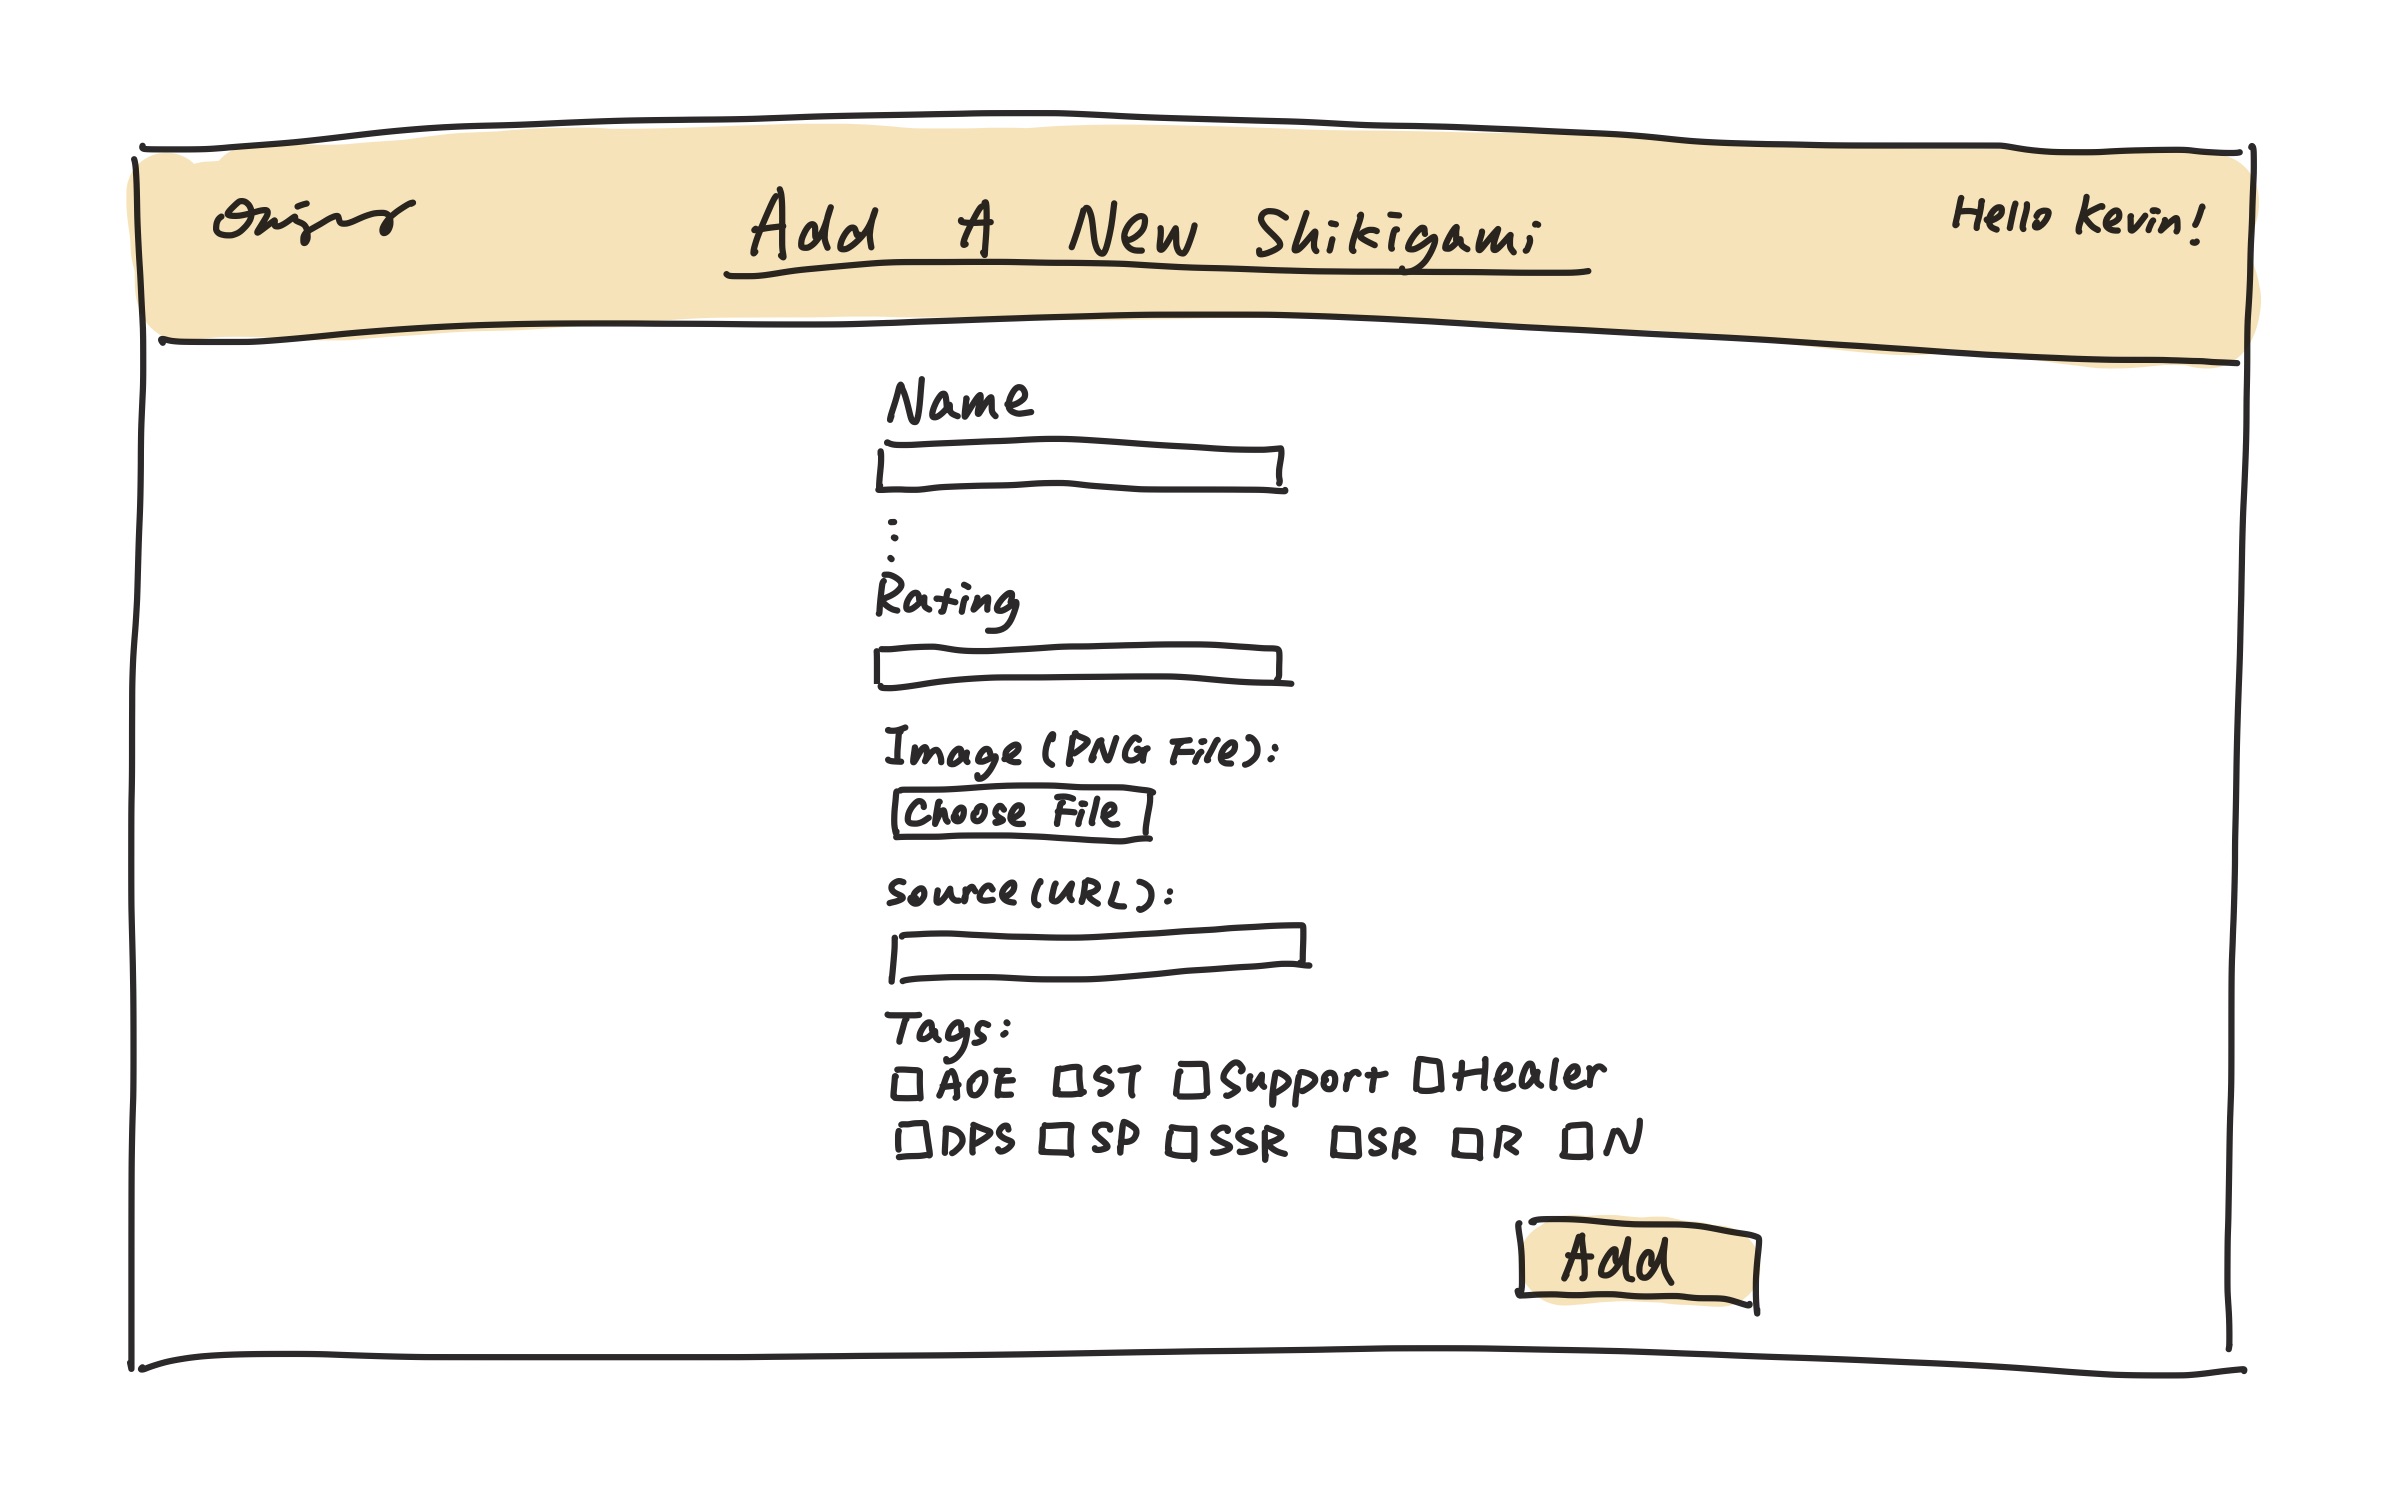 Add A New Shikigami
Hello Kevin!
Name
Rating
Image (PNG File):
Choose File
Source (URL):
Tags:
AOE ST Support Healer
DPS SP SSR SR R N
Add